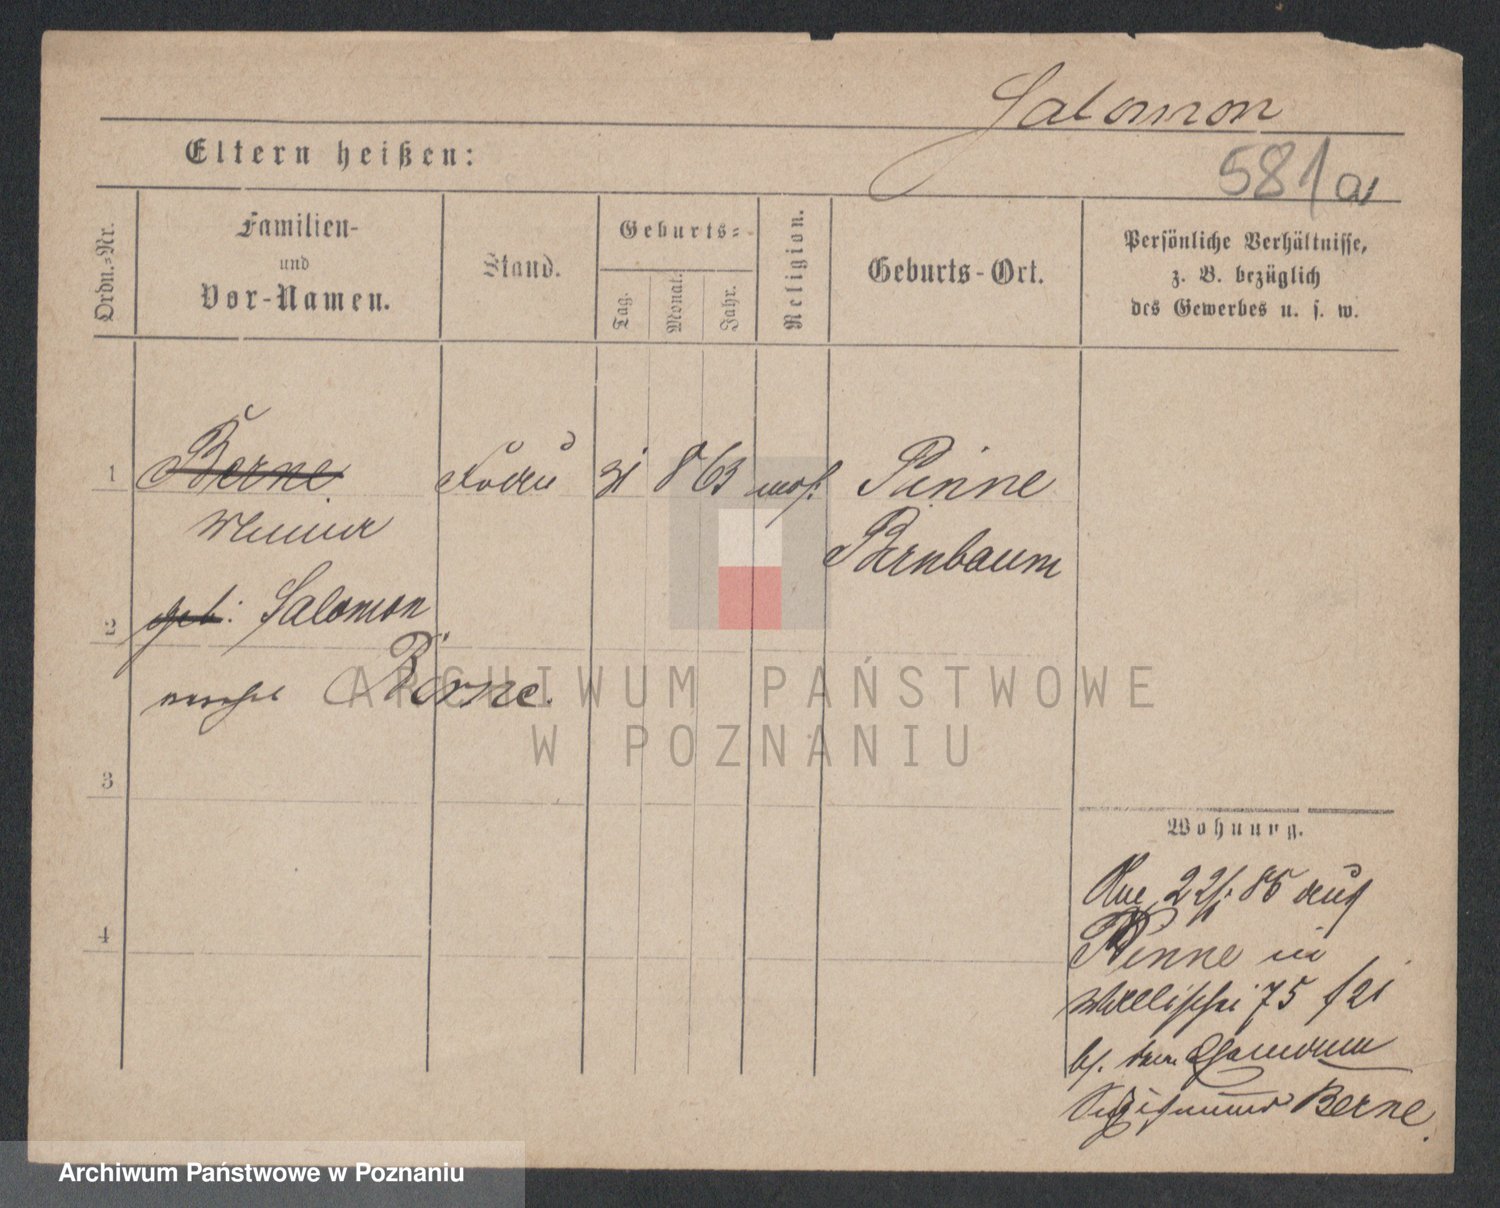 Salomon
Eltern heißen:
581a
Ordn.-Nr.
Familien-
und
Vor-Namen.
Stand.
Geburts-
Tag.
Monat.
Jahr.
Religion.
Geburts-Ort.
Persönliche Verhältnisse,
z. B. bezüglich
des Gewerbes u. s. w.
1 Berne 31 8 63 mos. Pinne
Birnbaum
2 geb: Salomon
Berne.
3
4
Wohnung.
22/ 85 auf
Pinne in
Wallischei 75 f 21
b/.
Sigismund Berne.
ARCHIWUM PAŃSTWOWE
W POZNANIU
Archiwum Państwowe w Poznaniu